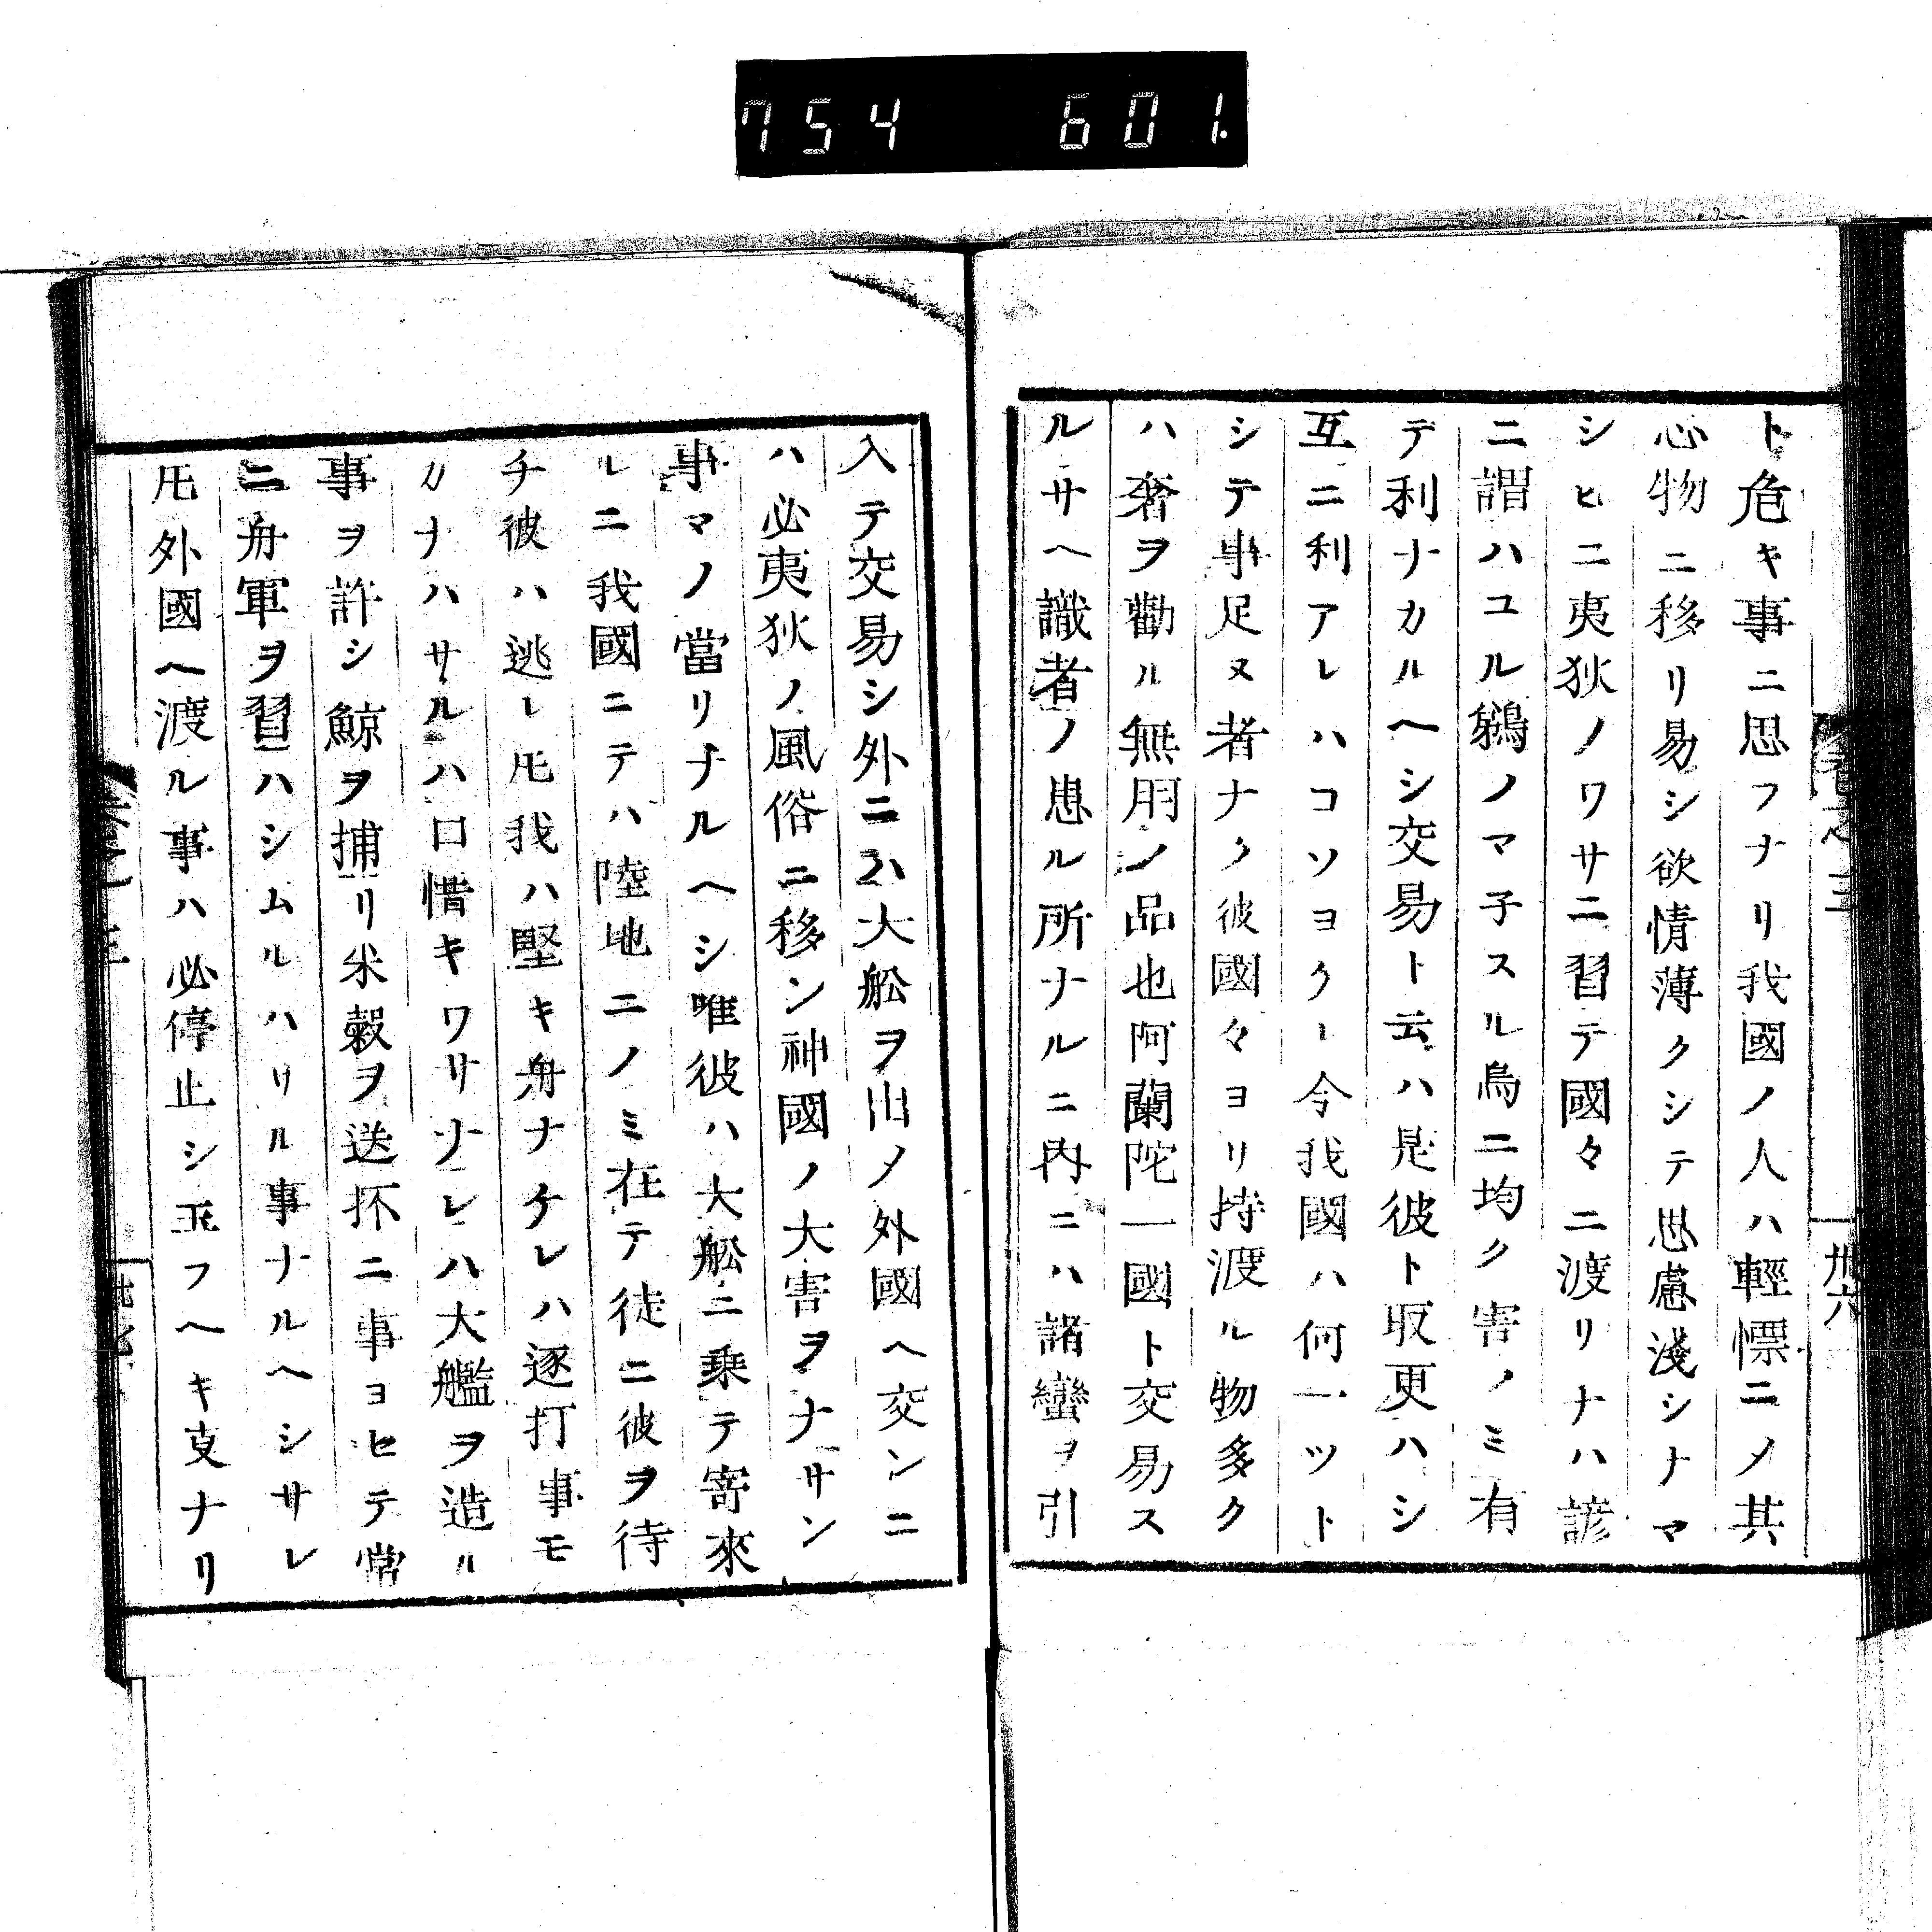 754 601.
卷之三
卅六
ト危キ事ニ思フナリ我國ノ人ハ輕慓ニメ其
心物ニ移リ易シ欲情薄クシテ思慮淺シナマ
シヒニ夷狄ノワサニ習テ國々ニ渡リナハ諺
ニ謂ハユル鵜ノマ子スル烏ニ均ク害ノミ有
テ利ナカルヘシ交易ト云ハ是彼ト取更ハシ
互ニ利アレハコソヨクー今我國ハ何一ツト
シテ事足ヌ者ナク彼國々ヨリ持渡ル物多ク
ハ奢ヲ勸ル無用ノ品也阿蘭陀一國ト交易ス
ルサヘ識者ノ患ル所ナルニ內ニハ諸蠻ヲ引
入テ交易シ外ニハ大舩ヲ出メ外國ヘ交ンニ
ハ必夷狄ノ風俗ニ移ン神國ノ大害ヲナサン
事マノ當リナルヘシ唯彼ハ大舩ニ乗テ寄來
レニ我國ニテハ陸地ニノミ在テ徒ニ彼ヲ待
チ彼ハ逃レ𪜈我ハ堅キ舟ナケレハ逐打事モ
カナハサルハ口惜キワサナレハ大艦ヲ造ル
事ヲ許シ鯨ヲ捕リ米穀ヲ送抔ニ事ヨセテ常
ニ舟軍ヲ習ハシムルハリル事ナルヘシサレ
𪜈外國ヘ渡ル事ハ必停止シ玉フヘキ㕝ナリ